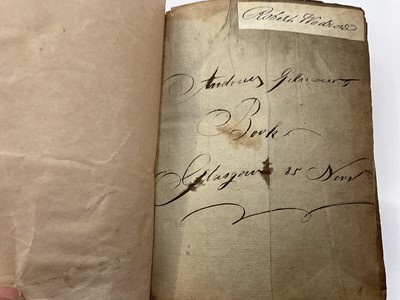 Robert Wodrow
Andrew Gilmour
Book
Glasgow 25 Novr